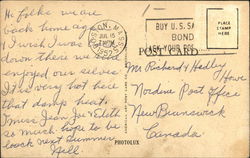 Hi folks we are
back home again
I wish I was back
down there we sure
enjoyed our selves
It is very hot here
that damp heat.
I miss Jean Joe & Edith
so much hope to be
back next Summer
Nell.
MASS.
JUL 15
1952
BUY U.S. SA
BOND
ASK YOUR POS
PLACE
STAMP
HERE
POST CARD
Mr Richard & Hadley
Howe
Nordene Post Office
New Brunswick
Canada
PHOTOLUX